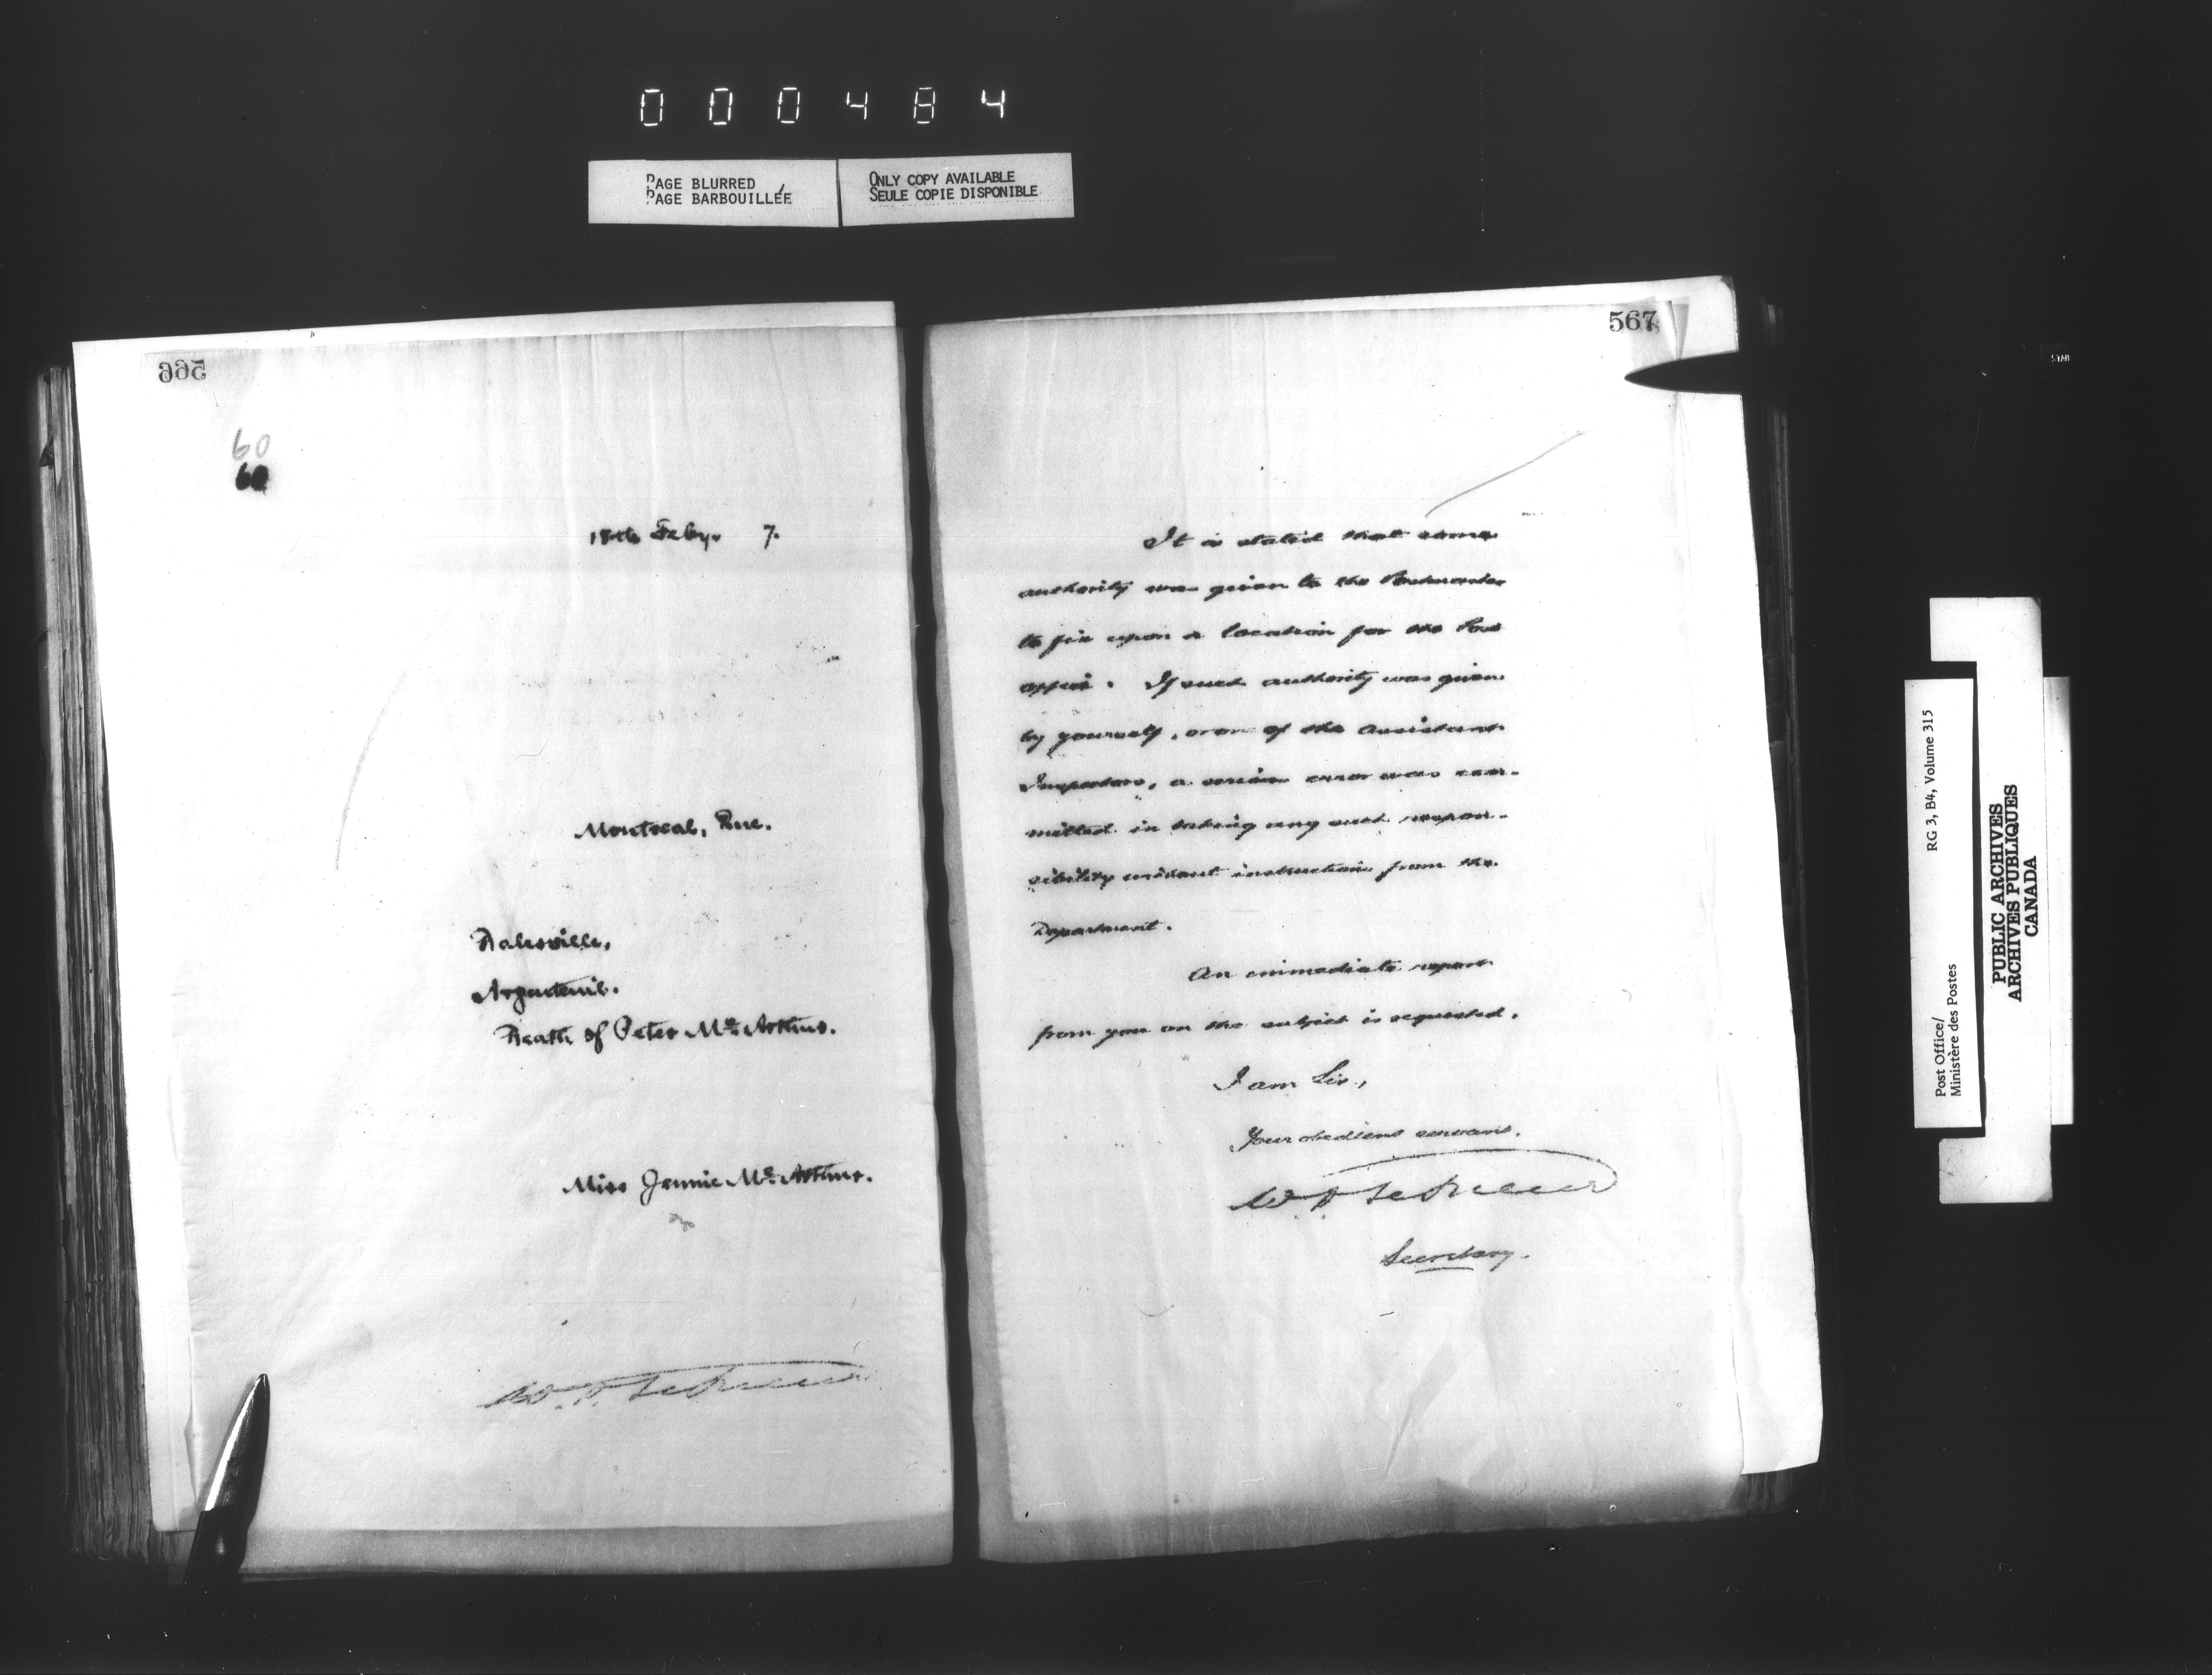 000484
PAGE BLURRED
PAGE BARBOUILLÉE
ONLY COPY AVAILABLE
SEULE COPIE DISPONIBLE
566
60
60
18th Feby. 7.
Montreal, Que.
Dalesville,
Argenteuil.
Death of Peter Mc Arthur.
Miss Jennie Mc Arthur.
567
It is stated that some
authority was given to the Postmaster
to fix upon a location for the Post
office. If such authority was given
by yourself, or one of the Assistant
Inspectors, a serious error was com-
mitted in taking any such respon-
sibility without instructions from the
Department.
An immediate report
from you on the subject is requested.
I am Sir,
Your obedient servant,
Secretary.
RG 3, B4, Volume 315
Post Office/
Ministère des Postes
PUBLIC ARCHIVES
ARCHIVES PUBLIQUES
CANADA